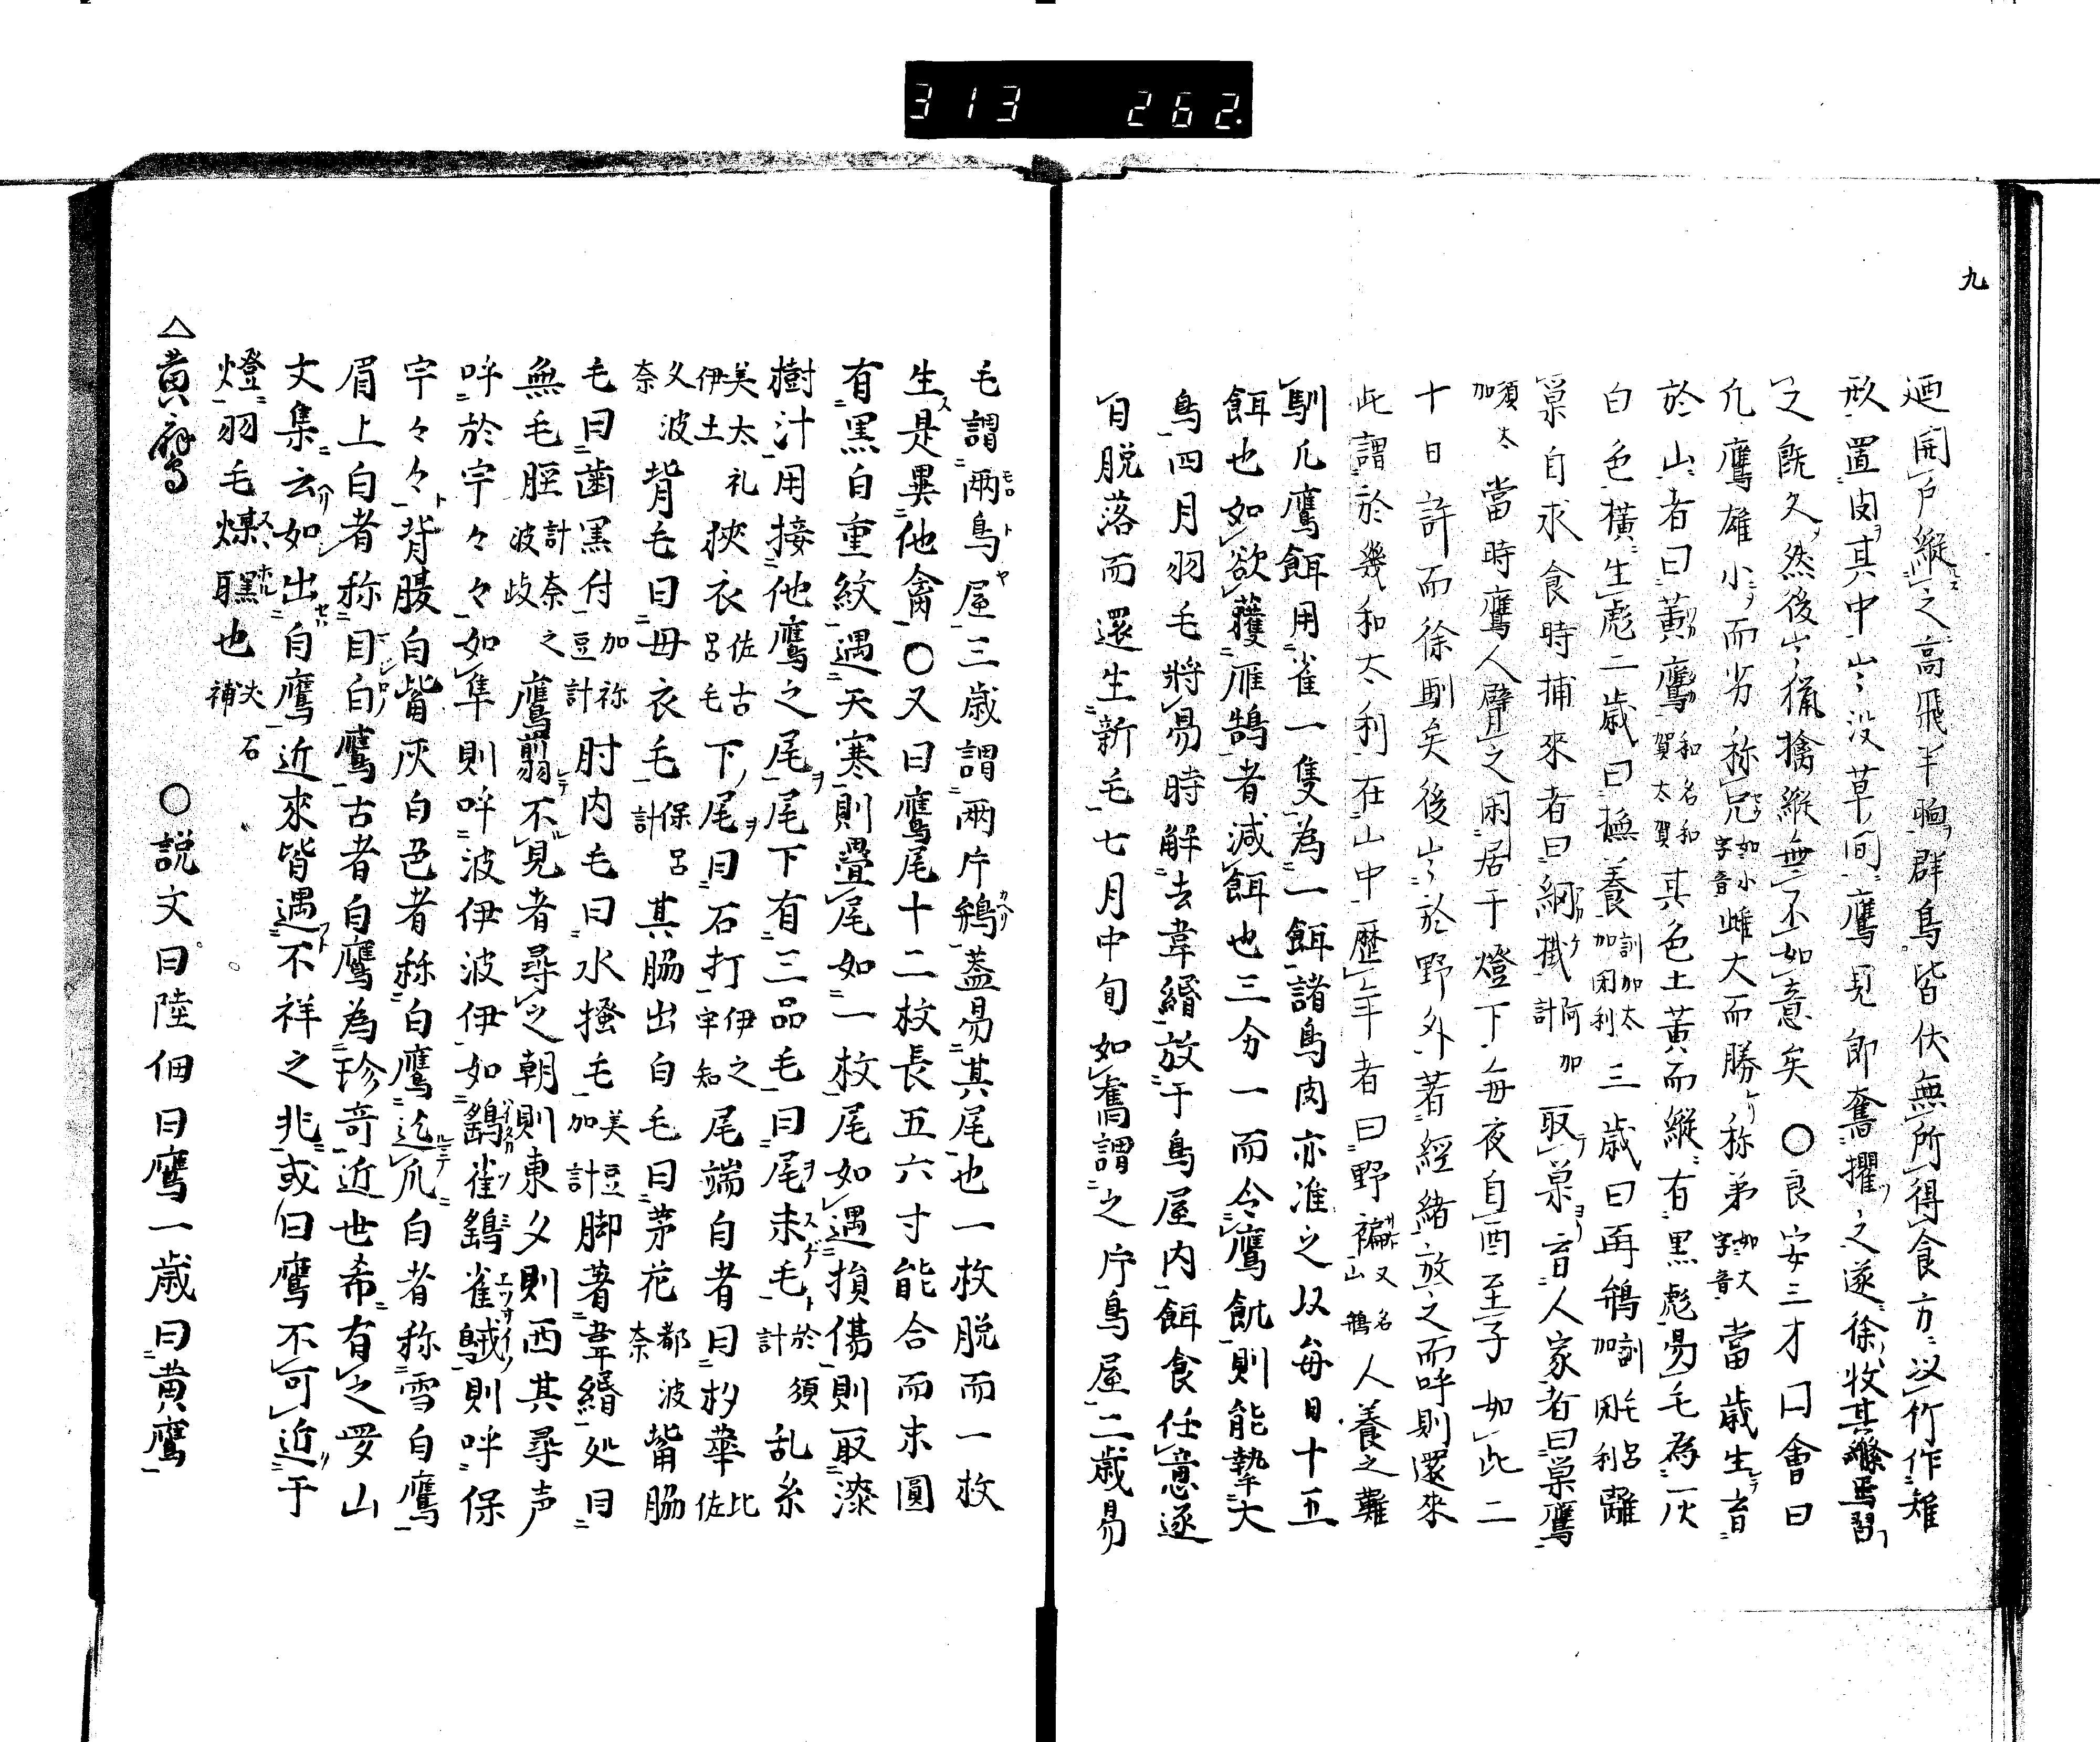 313 262.
九
廼開戸縦之高飛半晌群鳥皆伏無所得食方以竹作雉
形置肉其中々没草間鷹見即奮攫之遂徐牧其絛焉習
之既久然後出猟擒縦無不如意矣○良安三才図會曰
凢鷹雄小而劣称兄如小字音雌大而勝称弟如大字音當歳生育
於山者曰黄鷹和名和賀太賀其色土黄而縦有黒彪易毛為灰
白色横生彪二歳曰撫養訓加太加閉利三歳曰再鴘訓毛呂加閉利離
巣自求食時捕來者曰網掛阿加計取巣育人家者曰巣鷹
須太加當時鷹人臂之閑居于燈下毎夜自酉至子如此二
十日許而徐馴矣後出於野外著經緒放之而呼則還來
此謂於幾和太利在山中歴年者曰野褊又名山鵰人養之難
馴凢鷹餌用雀一隻為一餌諸鳥肉亦准之以毎日十五
餌也如欲獲雁鵠者減餌也三分一而令鷹飢則能摯大
鳥四月羽毛將易時解去韋緡放于鳥屋内餌食任意遂
自脱落而還生新毛七月中旬如舊謂之片鳥屋二歳易
毛謂兩鳥屋三歳謂兩片鴘蓋易其尾也一枚脱而一枚
生是異他禽○又曰鷹尾十二枚長五六寸能合而末圓
有黒白重紋遇天寒則疊尾如一枚尾如遇損傷則取漆
樹汁用接他鷹之尾尾下有三品毛曰尾末毛於須計乱糸
美太礼伊土狹衣佐古呂毛下尾曰石打伊之宇知尾端白者曰杉華比佐
乆波奈背毛曰毋衣毛保呂計其脇出白毛曰茅花都波奈觜脇
毛曰歯黒付加祢豆計肘内毛曰水掻毛美豆加計脚著韋緡処曰
無毛脛計奈波岐之鷹翦不見者尋之朝則東夕則西其尋声
呼於宇々々如隼則呼波伊波伊如鷂雀鷂雀䳄則呼保
宇々々背腹白觜灰白色者称白鷹迄爪白者称雪白鷹
眉上白者称目白鷹古者白鷹為珍竒近世希有之夢山
文集云如出白鷹近來皆遇不祥之兆或曰鷹不可近于
燈羽毛煤黶也夫石補
△黄鷹　○説文曰陸佃曰鷹一歳曰黄鷹